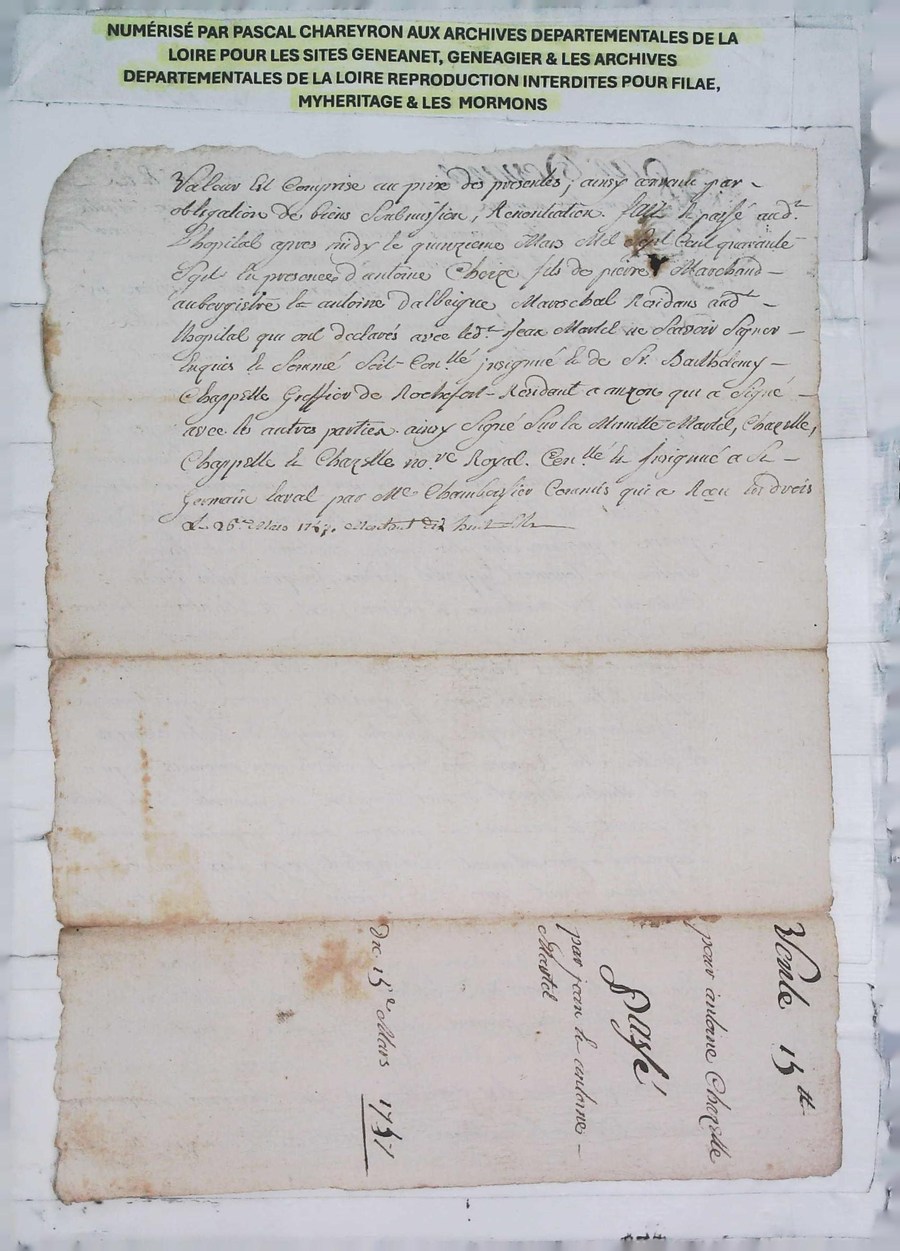 NUMÉRISÉ PAR PASCAL CHAREYRON AUX ARCHIVES DEPARTEMENTALES DE LA
LOIRE POUR LES SITES GENEANET, GENEAGIER & LES ARCHIVES
DEPARTEMENTALES DE LA LOIRE REPRODUCTION INTERDITES POUR FILAE,
MYHERITAGE & LES MORMONS
Valeur Est Comprise au prix des presentes, ainsy convenu par
obligation de biens Soubmission, Renontiation. fait et passé aud.t
Lhopital apres midy le quinzieme Mars Mil Sept Cent quarante
Sept En presence d'antoine Cheize fils de pierre Marchand
aubergistre Et antoine Dalbeigue Mareschal Residans aud.t
Lhopital qui ont declarés avec led.t Jean Martel ne Scavoir Signer
Enquis Et Sommé Soit Con.llé jnsignué Et de Sr. Barthelemy
Chappelle Greffier de Rochefort Residant a auzon qui a Signé
avec les autres parties. ainsy Signé Sur la Minutte Martel, Chazelle,
Chappelle Et Chazelle no.re Royal. Con.llé Et jnsignué a St
Germain Laval par Me Commis qui a Receu les droits
Le 26e Mars 1747.
Vente 15tt
pour antoine Chazelle
Passé
par jean et antoine
Martel
Du 15e Mars 1747